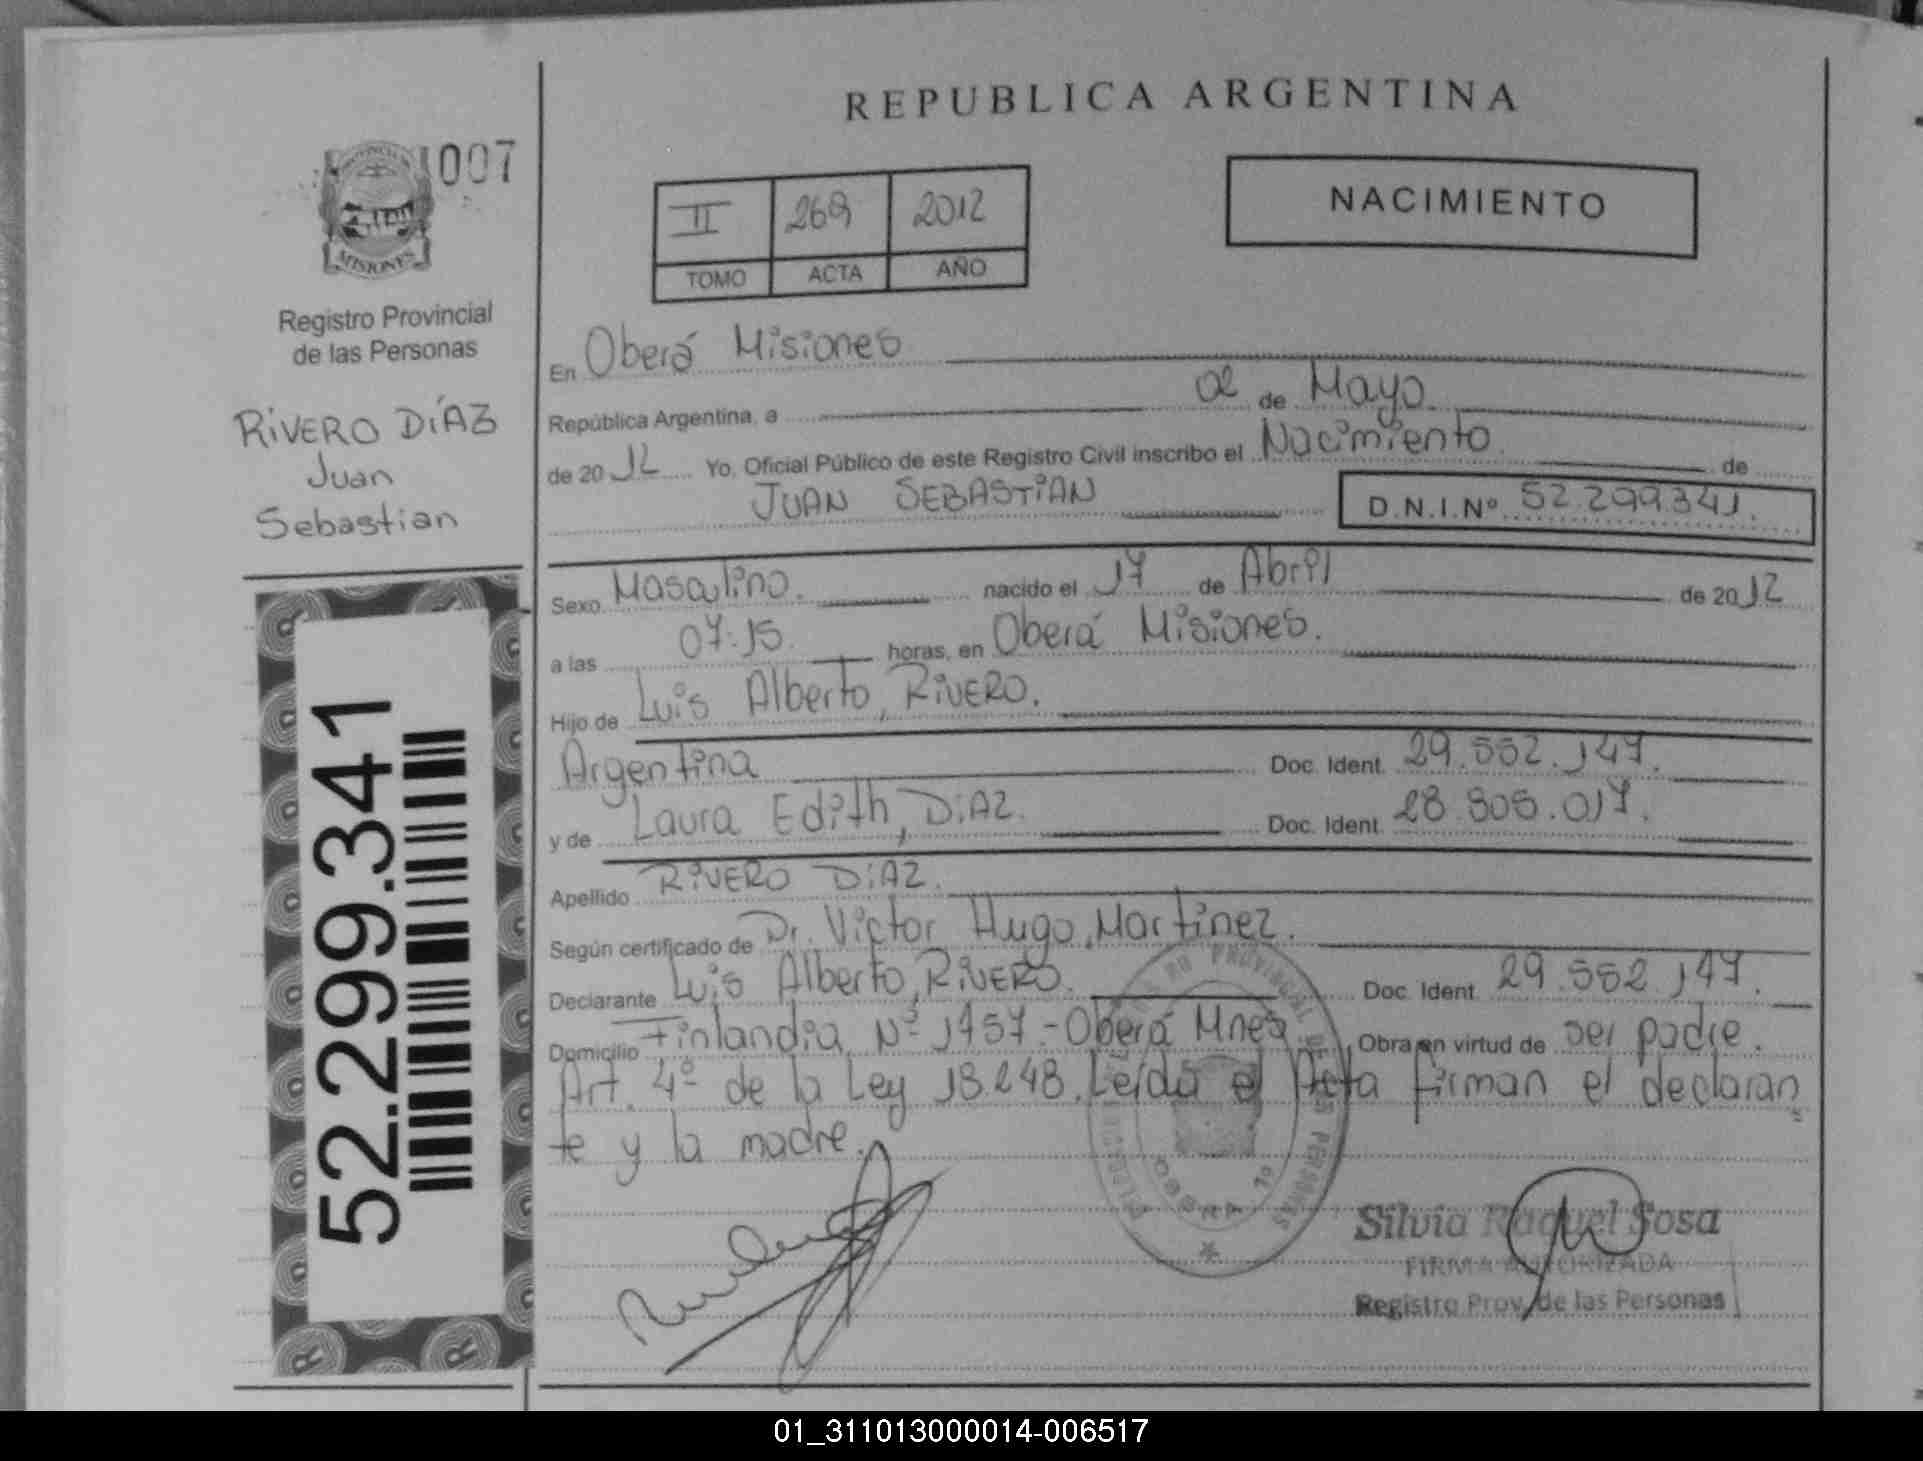 REPUBLICA ARGENTINA
1007
MISIONES
Registro Provincial
de las Personas
RIVERO DÍAZ
Juan
Sebastian
52.299.341
II 269 2012
TOMO ACTA AÑO
NACIMIENTO
En Oberá Misiones
República Argentina, a 02 de Mayo
de 2012 Yo, Oficial Público de este Registro Civil inscribo el Nacimiento de
JUAN SEBASTIAN D.N.I.Nº 52.299.341.
Sexo Masculino. nacido el 17 de Abril de 2012
a las 07:15. horas, en Oberá Misiones.
Hijo de Luis Alberto, RIVERO.
Argentina Doc. Ident. 29.552.147.
y de Laura Edith, DIAZ. Doc. Ident. 28.805.017.
Apellido RIVERO DIAZ.
Según certificado de Dr. Victor Hugo, Martinez.
Declarante Luis Alberto, RIVERO. Doc. Ident. 29.552.147.
Domicilio Finlandia Nº 1757.- Oberá Mnes Obra en virtud de ser padre.
Art. 4º de la Ley 18.248. Leída el Acta firman el declaran
te y la madre.
PROVINCIAL DE LAS PERSONAS
Silvia Raquel Sosa
FIRMA AUTORIZADA
Registro Prov. de las Personas
01_311013000014-006517